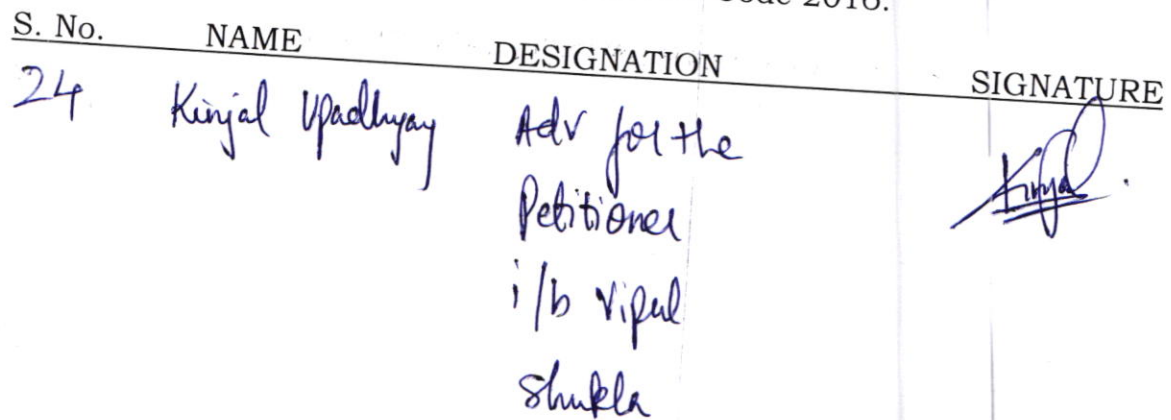 Code 2016.
S. No. NAME DESIGNATION SIGNATURE
24 Kinjal Upadhyay Adv for the
Petitioner
i/b Vipul
Shukla
Kinjal.